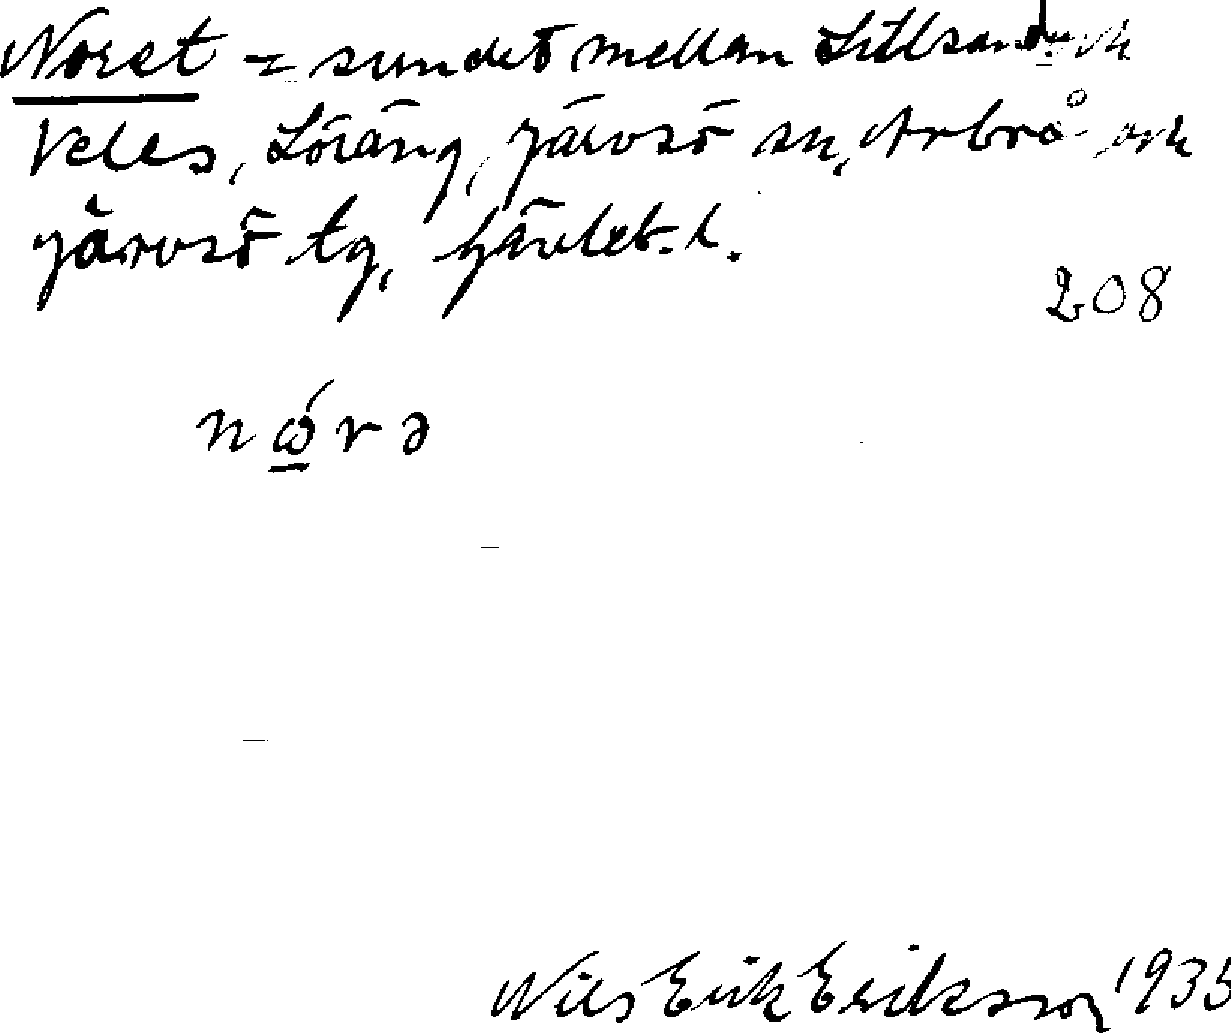 Noret = sundet mellan Lillsandu och
Veles, Löräng, Järvsö sn, Arbrå och
Järvsö tg, Gävleb. l.
208
nǿrə
Nils Erik Eriksson 1935